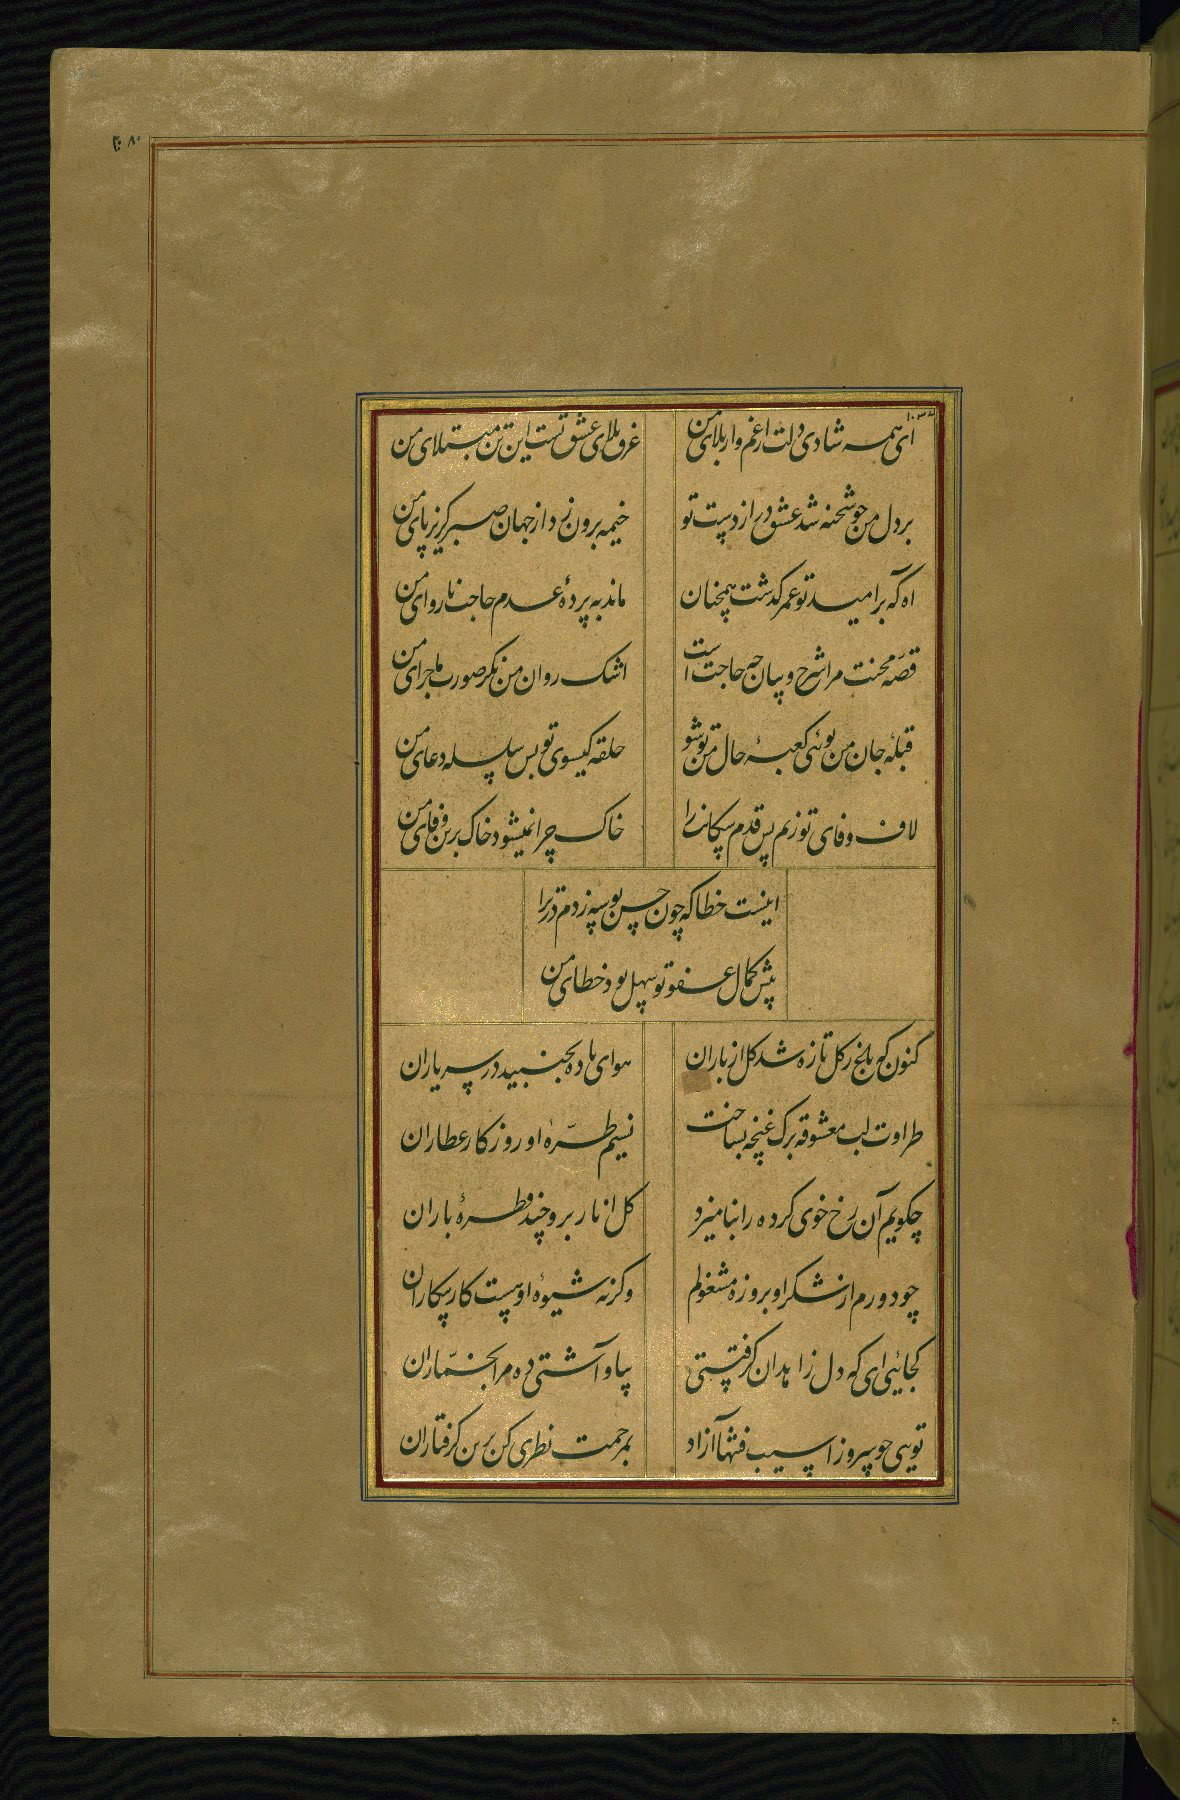 ۱۰۳۵
ای همه شادی دلت از غم و از بلای من
غرق بلای عشق تست این تن مبتلای من
بر دل من چو شحنه شد عشق دراز دست تو
خیمه برون زد از جهان صبر گریز پای من
اه که بر امید تو عمر گذشت همچنان
ماند به پردهٔ عدم حاجت ناروای من
قصهٔ محنت مرا شرح و بیان چه حاجت است
اشک روان من نگر صورت ماجرای من
قبلهٔ جان من توئی کعبهٔ حال من تو شو
حلقه گیسوی تو بس سلسله دعای من
لاف وفای تو زنم پس قدم سگانرا
خاک چرا نمیشود خاک برین وفای من
اینست خطا که چون حسن بوسه زدم در ترا
پیش کمال عفو تو سهل بود خطای من
کنون که باخ زگل تازه شد گل از باران
هوای باده بجنبید در سر یاران
طراوت لب معشوقه برگ غنچه بساخت
نسیم طرهٔ او روزگار عطاران
چگویم آن رخ خوی کرده را بنامیزد
گل انار برو چند قطرهٔ باران
چو دورم از شکر او بروزه مشغولم
وگرنه شیوهٔ او هست کار میکاران
کجائی ای که دل زاهدان گرفتستی
بیا و آشتی ده مرا بخماران
تویی چو سرو ز اسیب فتنها آزاد
بمرحمت نظری کن برین گرفتاران